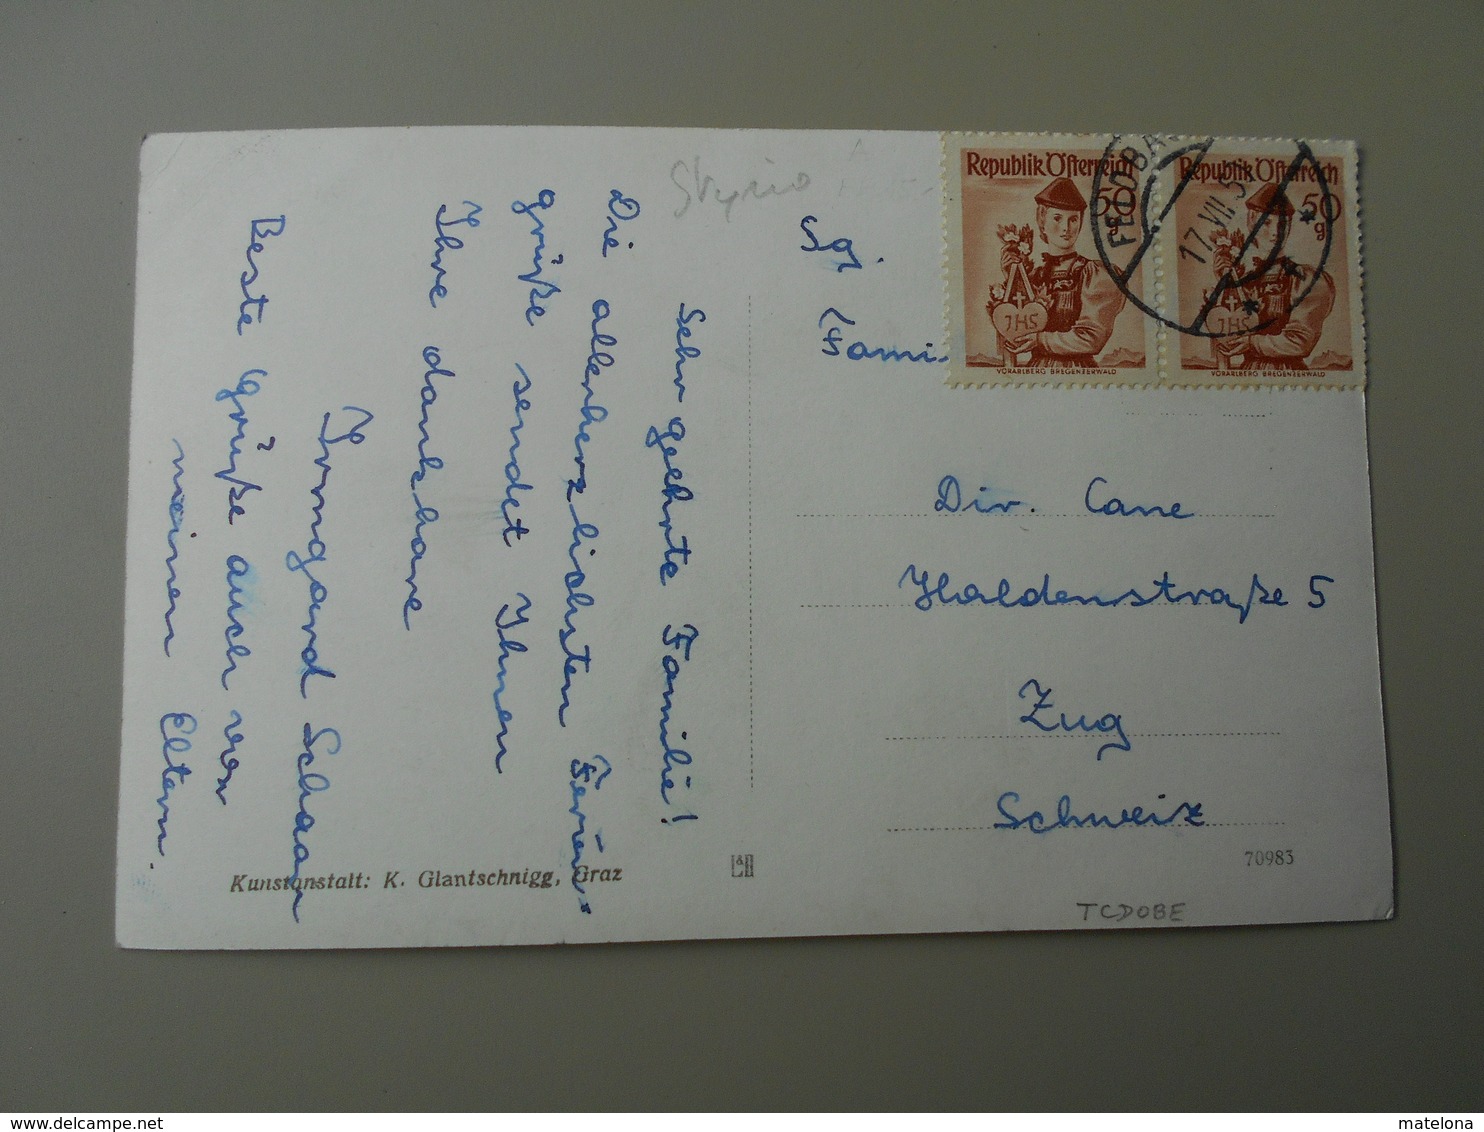 Sehr geehrte Familie!
Die allerherzlichsten Ferien-
grüße sendet Ihnen
Ihre dankbare
Irmgard Schaar
Beste Grüße auch von
meinen Eltern.
Styria
Kunstanstalt: K. Glantschnigg, Graz
Republik Österreich
50
g
JHS
VORARLBERG BREGENZERWALD
Republik Österreich
50
g
JHS
VORARLBERG BREGENZERWALD
FELDBA
17. VII. 5
Sgr.
Fami
Div. Cane
Haldenstraße 5
Zug
Schweiz
70983
TCDOBE
delcampe.net
matelona